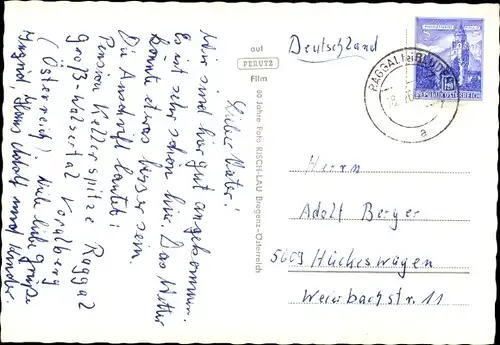 Lieber Vater!
Wir sind hier gut angekommen.
Es ist sehr schön hier. Das Wetter
könnte etwas besser sein.
Die Anschrift lautet:
Pension Kellerspitze Raggal
Groß-Walsertal Vorarlberg
(Österreich) Viele liebe Grüße
Ingrid, Hans Adolf und Kinder.
auf
PERUTZ
Film
60 Jahre Foto RISCH-LAU Bregenz-Österreich
Deutschland
RAGGAL
a
REPUBLIK ÖSTERREICH
Herrn
Adolf Berger
5609 Hückeswagen
Weierbachstr. 11